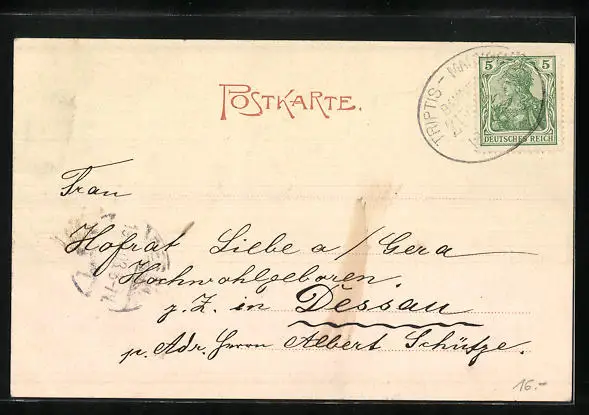 POSTKARTE.
TRIPTIS –
5 5
DEUTSCHES REICH
Frau
Hofrat Liebe a/Gera
Hochwohlgeboren.
z. Z. in Dessau
p. Adr. Herrn Albert Schütze.
16.-